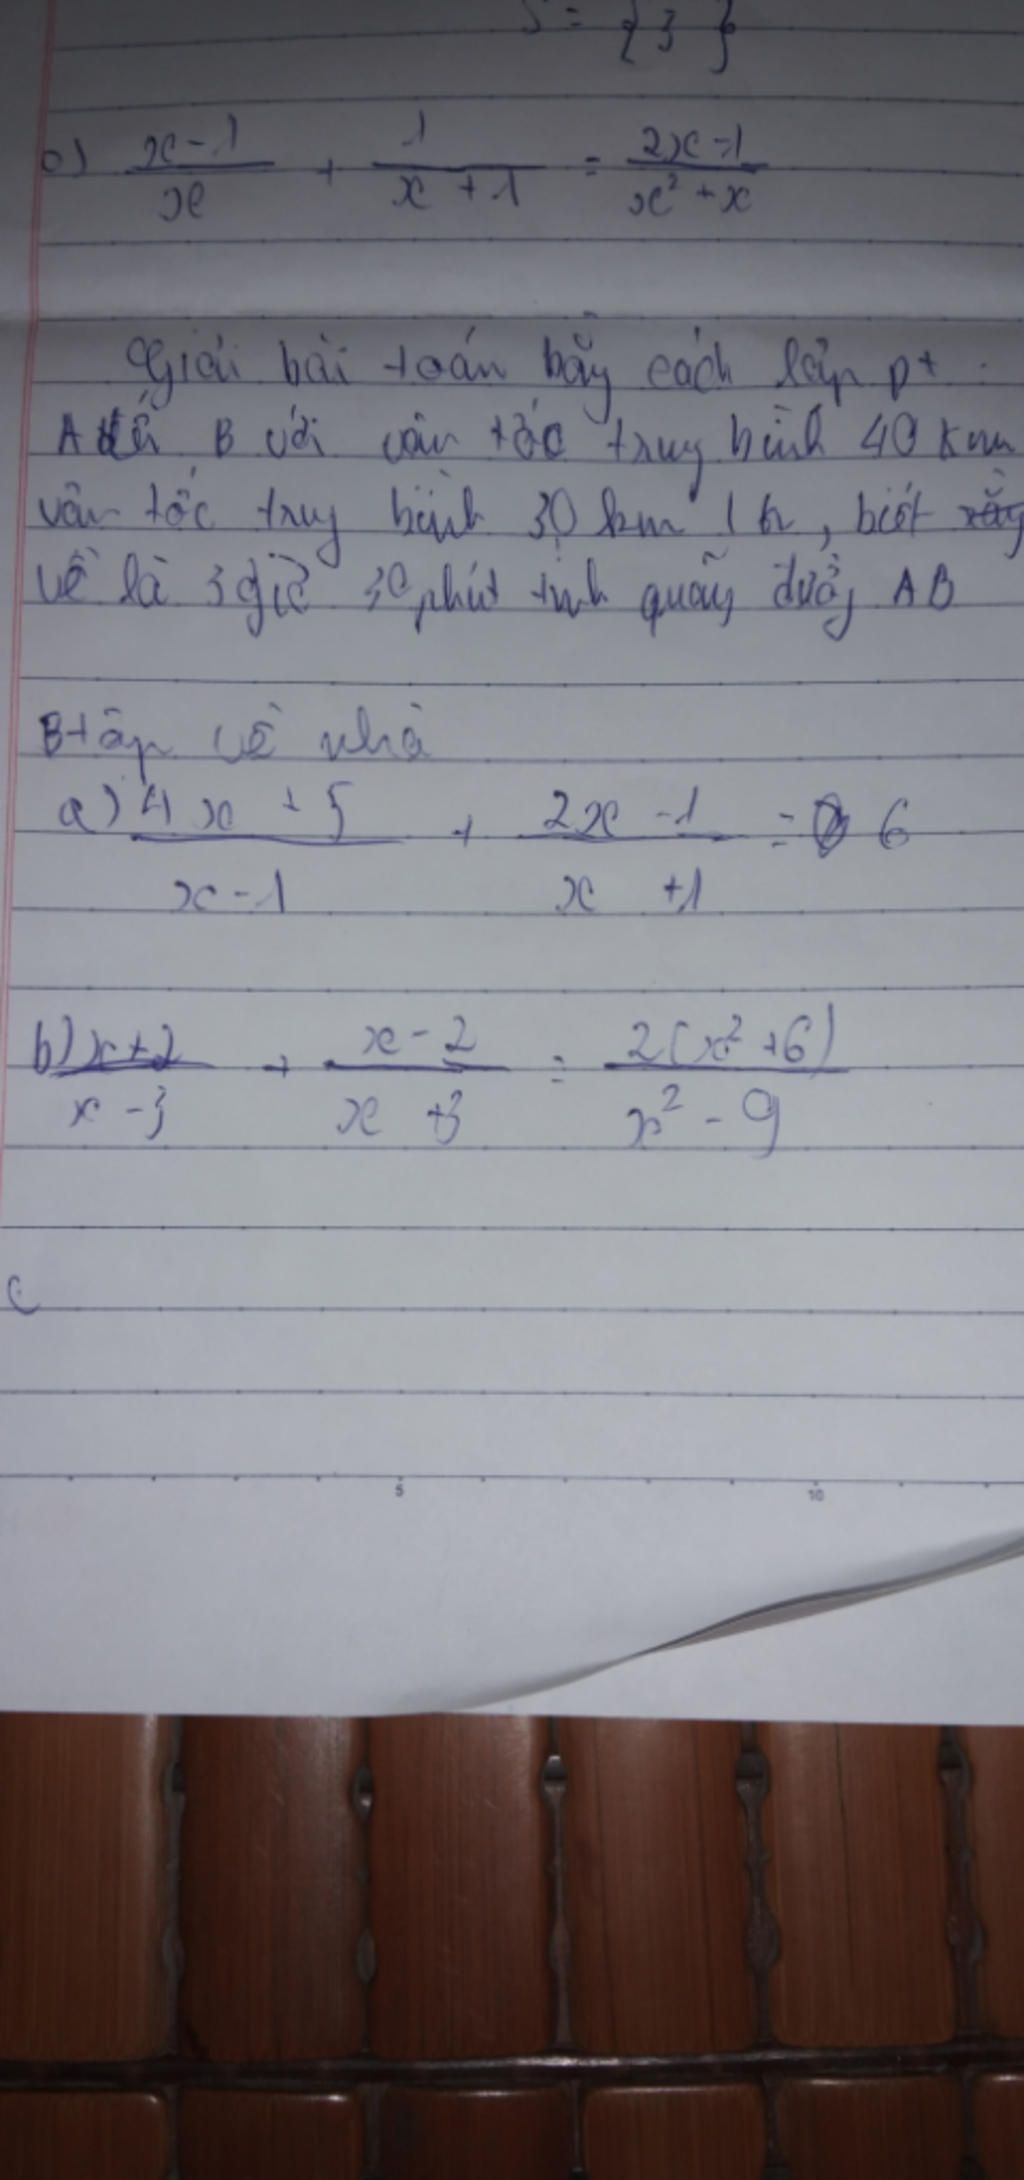 S = { 3 }
c) (x-1)/x + 1/(x+1) = (2x-1)/(x²+x)
Giải bài toán bằng cách lập pt
A đến B với vận tốc trung bình 40 km
vận tốc trung bình 30 km / h, biết rằng
về là 3 giờ 30 phút tính quãng đường AB
Btập về nhà
a) (4x+5)/(x-1) + (2x-1)/(x+1) = 6
b) (x+2)/(x-3) + (x-2)/(x+3) = 2(x²+6)/(x²-9)
c
5 10